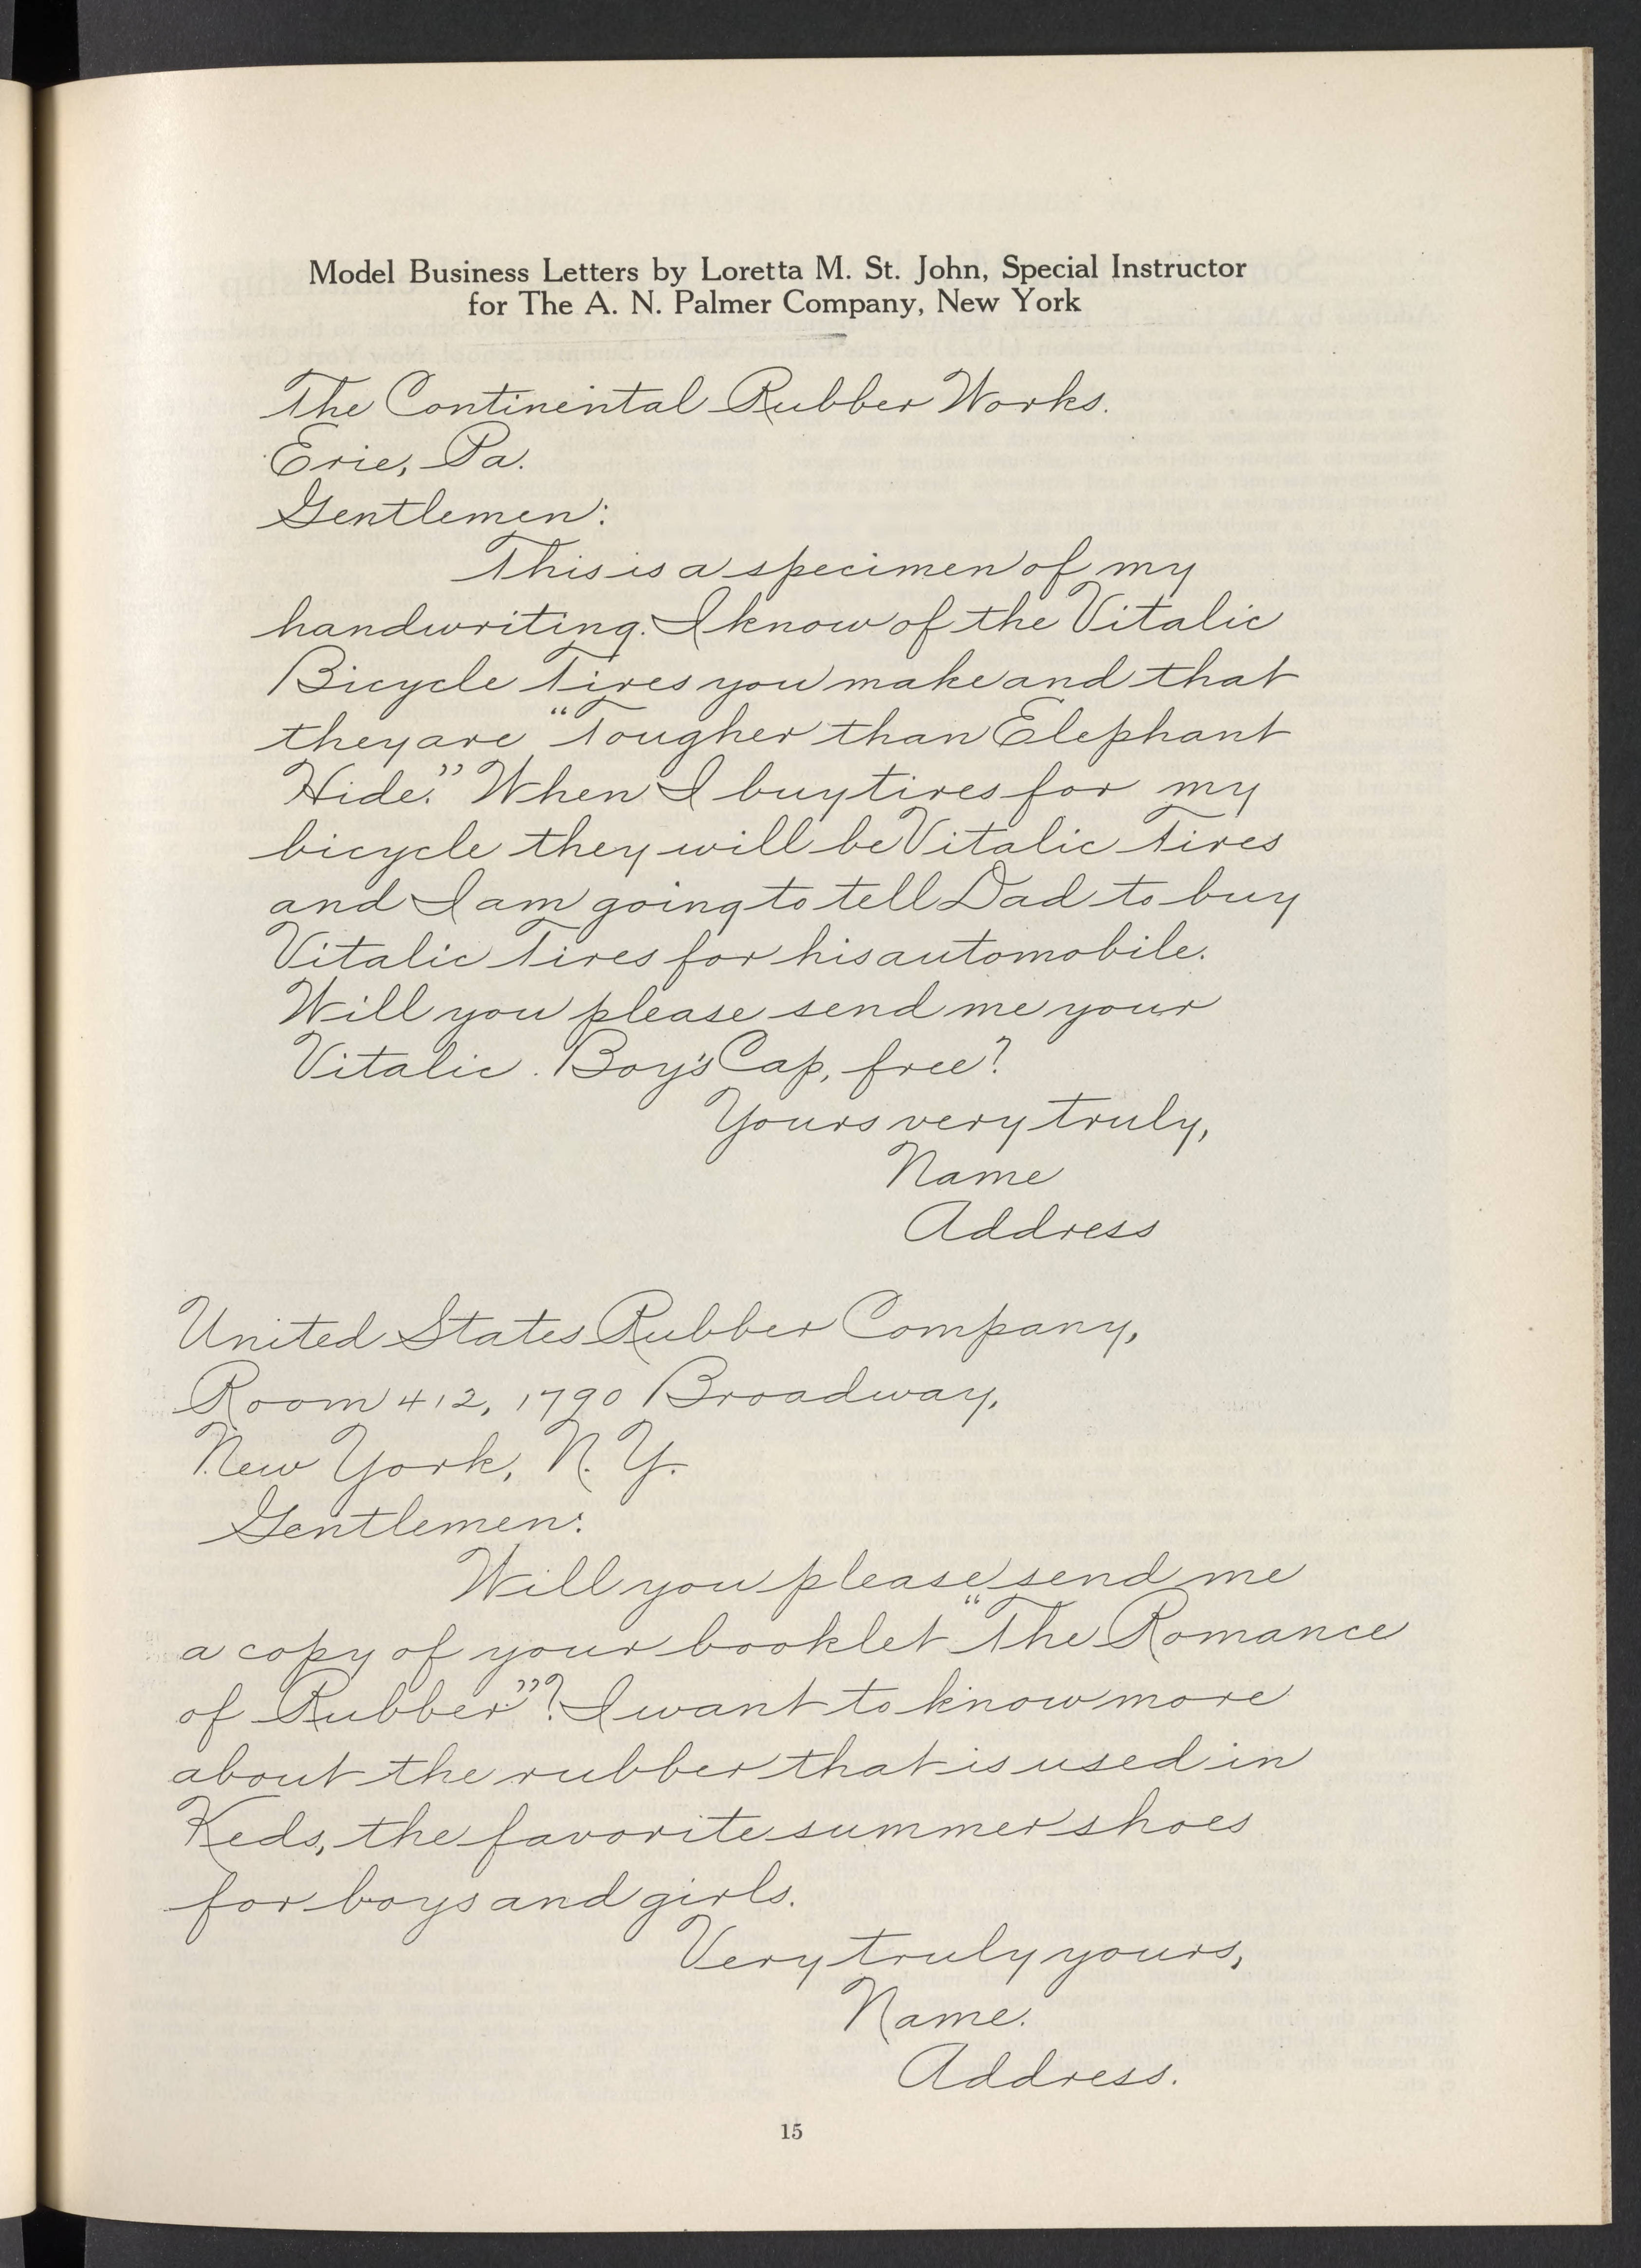 Model Business Letters by Loretta M. St. John, Special Instructor
for The A. N. Palmer Company, New York
The Continental Rubber Works.
Erie, Pa.
Gentlemen:
This is a specimen of my
handwriting. I know of the Vitalic
Bicycle Tires you make and that
they are "Tougher than Elephant
Hide." When I buy tires for my
bicycle they will be Vitalic Tires
and I am going to tell Dad to buy
Vitalic Tires for his automobile.
Will you please send me your
Vitalic Boy's Cap, free?
Yours very truly,
Name
Address
United States Rubber Company,
Room 412, 1790 Broadway,
New York, N. Y.
Gentlemen:
Will you please send me
a copy of your booklet "The Romance
of Rubber"? I want to know more
about the rubber that is used in
Keds, the favorite summer shoes
for boys and girls.
Very truly yours,
Name.
Address.
15